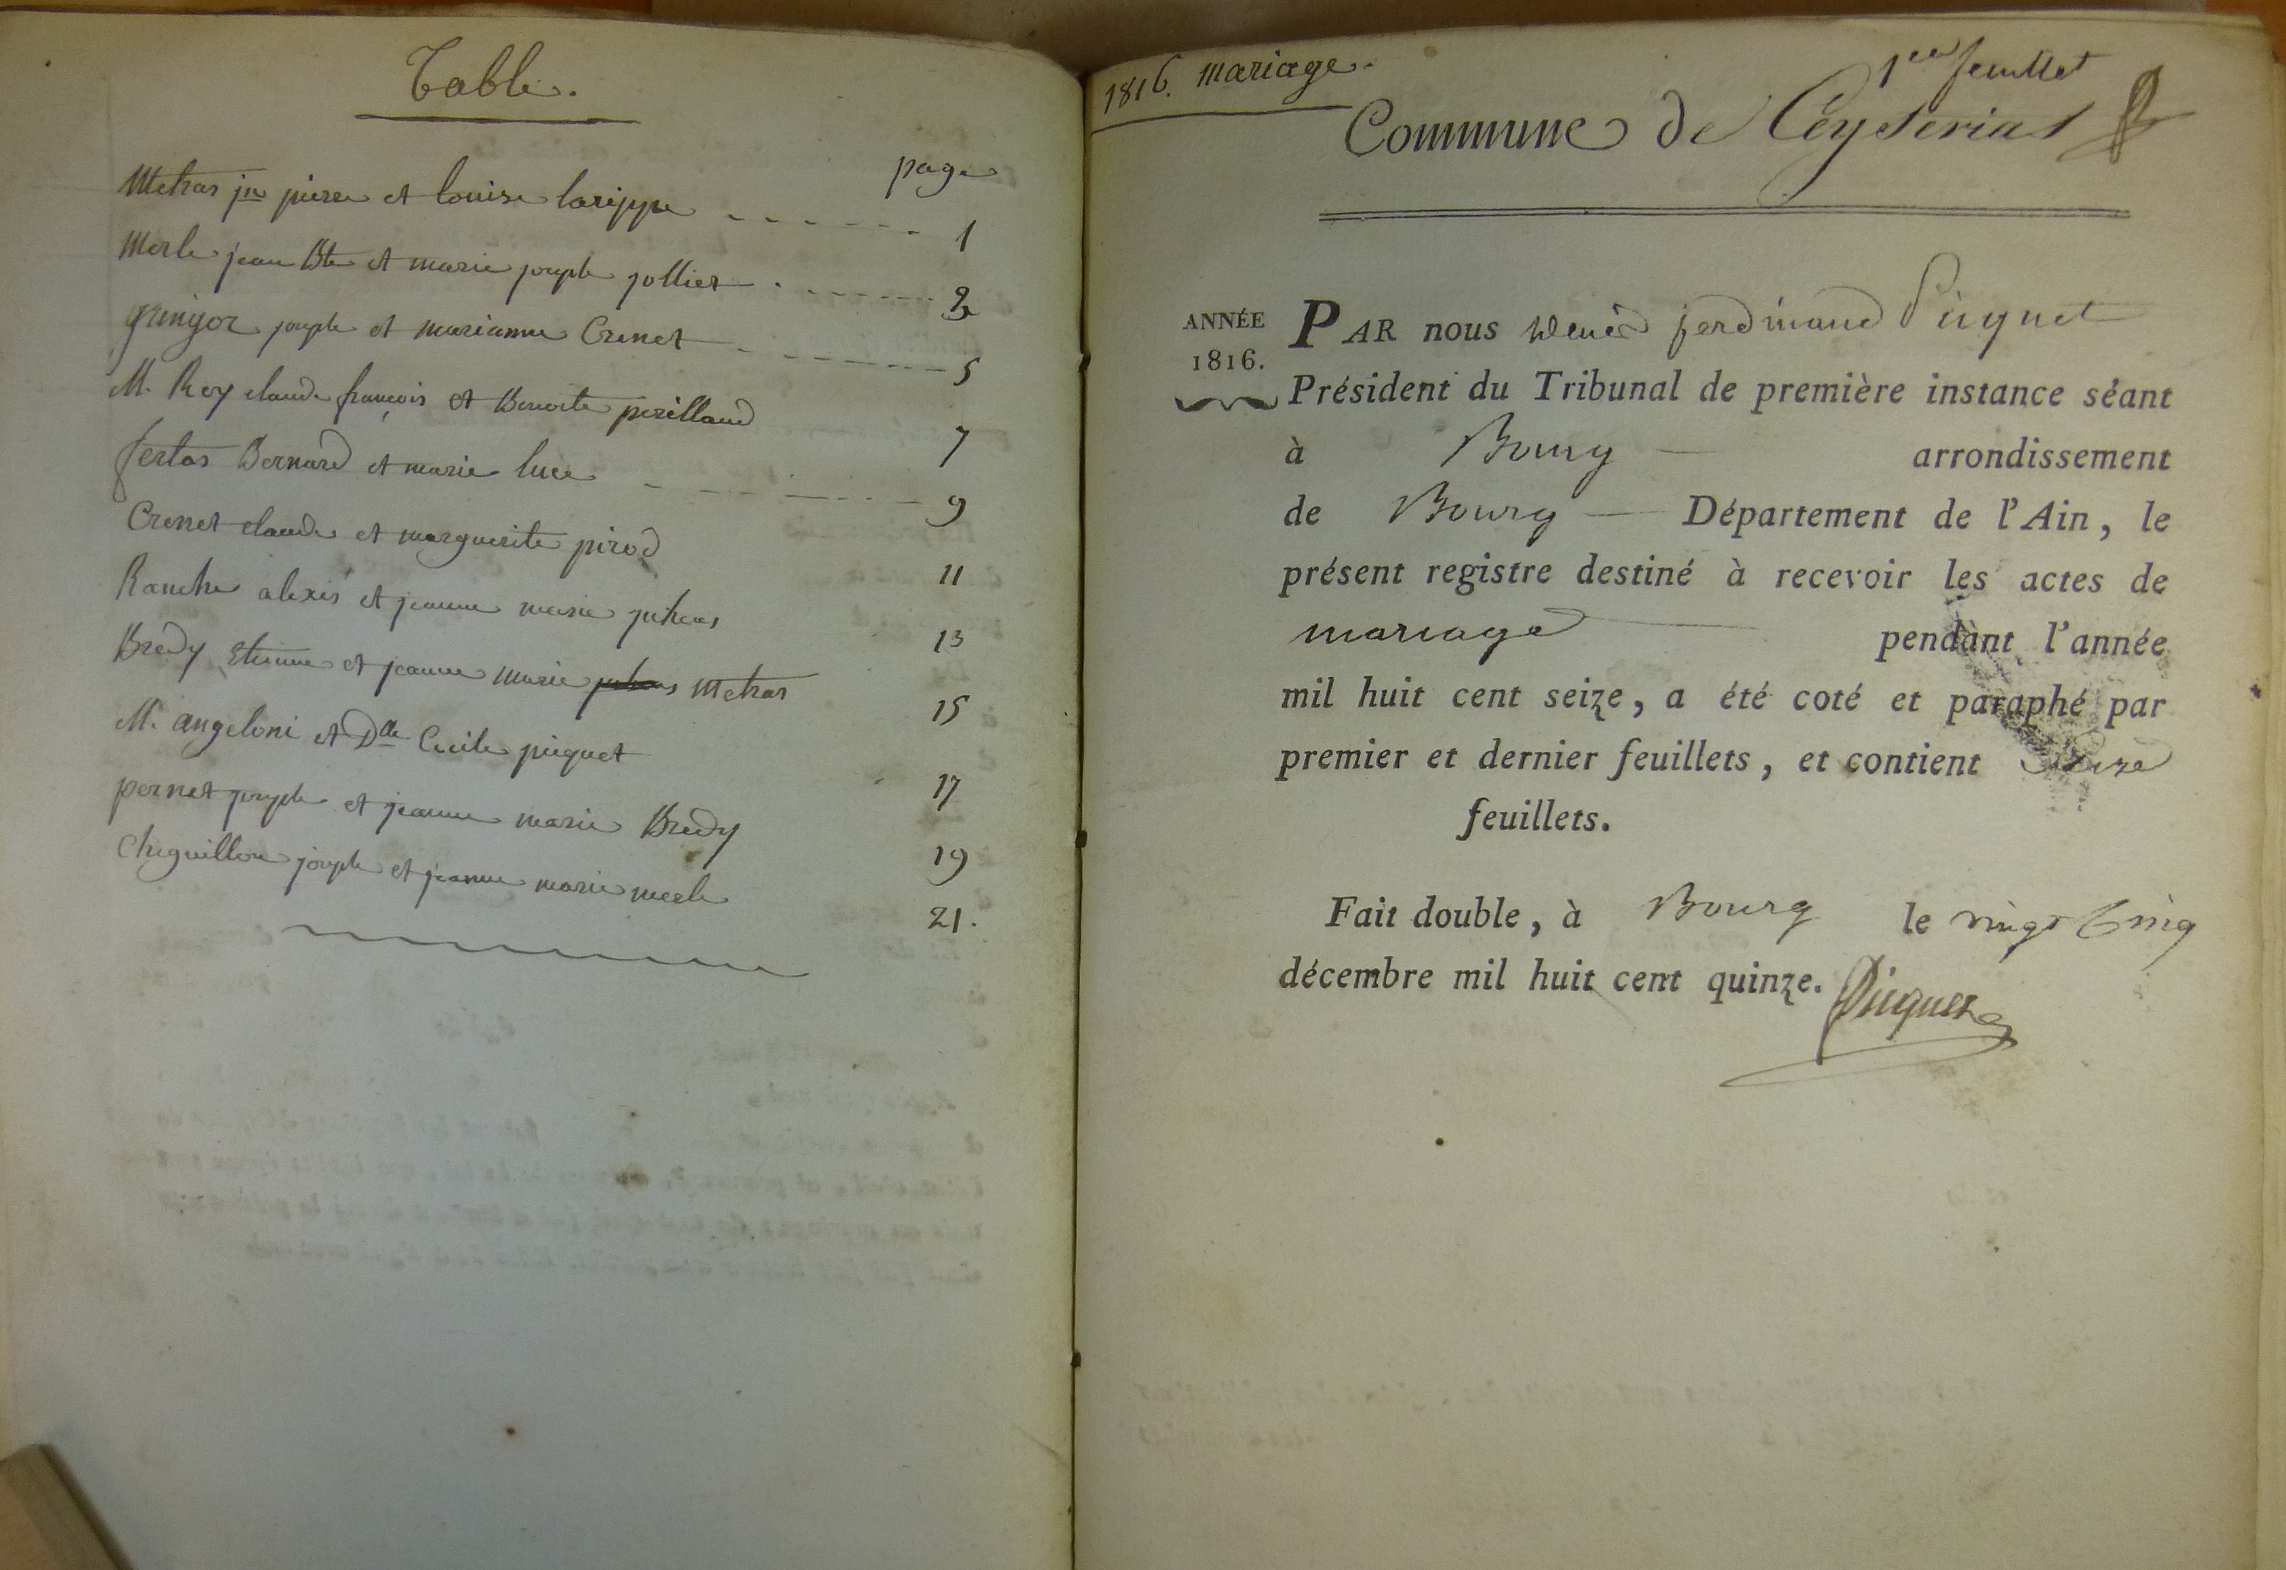 Table.
page
Metras jn pierre et louise larippe 1
Merle jean Bte et marie joseph jollier 3
gringoz joseph et marianne Crenet 5
M. Roy claude françois et Benoite perillaud 7
fertas Bernard et marie luce 9
Crenet claude et marguerite pirod 11
Ranche alexis et jeanne marie juhens 13
Bredy Etienne et jeanne marie Metras 15
M. angeloni et Dlle Cecile piquet 17
pernet joseph et jeanne marie Bredy 19
Chiguillon joseph et jeanne marie merle 21.
1816. mariage.
1er feuillet
Commune de Ceyseriat
ANNÉE
1816.
PAR nous ferdinand Piquet
Président du Tribunal de première instance séant
à Bourg arrondissement
de Bourg Département de l'Ain, le
présent registre destiné à recevoir les actes de
mariage pendant l'année
mil huit cent seize, a été coté et paraphé par
premier et dernier feuillets, et contient seize
feuillets.
Fait double, à Bourg le vingt Cinq
décembre mil huit cent quinze.
Piquet